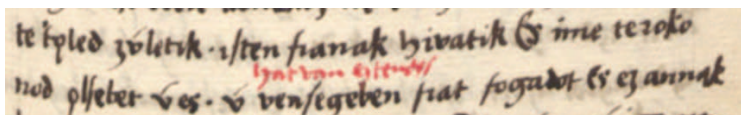 te tøled zv́letik · iſten fianak hivatik Es ime te roko
hatvan
nod elſebet v́ es · v́ venſegeben fiat fogadot es ez annak